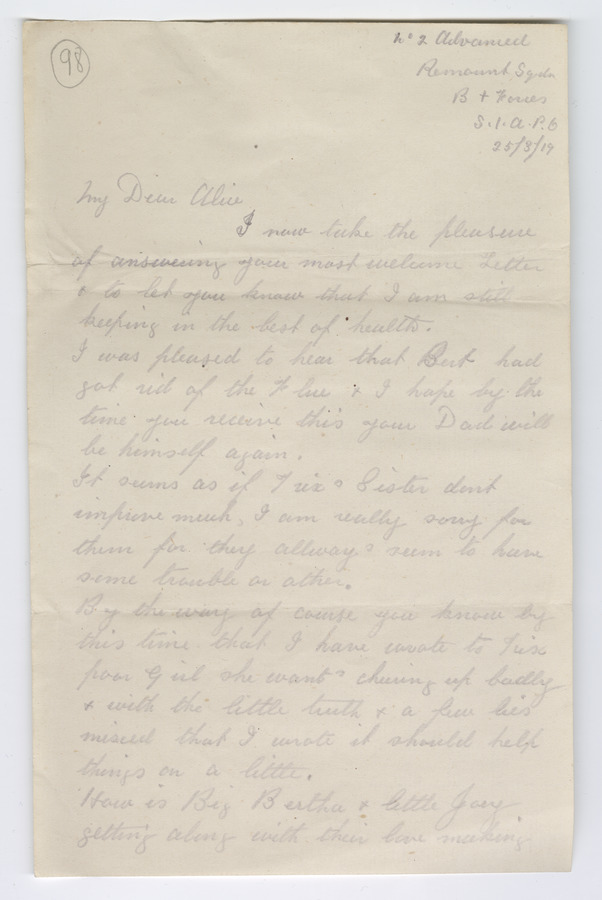 98
No 2 Advanced
Remount Sqdn
B & Forces
S.I.A.P.O
25/3/19
My Dear Alice
I now take the pleasure
of answering your most welcome Letter
& to let you know that I am still
keeping in the best of health.
I was pleased to hear that Bert had
got rid of the Flue & I hope by the
time you receive this your Dad will
be himself again.
It seems as if Trixs Sister dont
improve much, I am really sorry for
them for they allways seem to have
some trouble or other.
By the way of course you know by
this time that I have wrote to Trix
poor Girl she wants cheering up badly
& with the little truth & a few lies
mixed that I wrote it should help
things on a little.
How is Big Bertha & little Joey
getting along with their love making